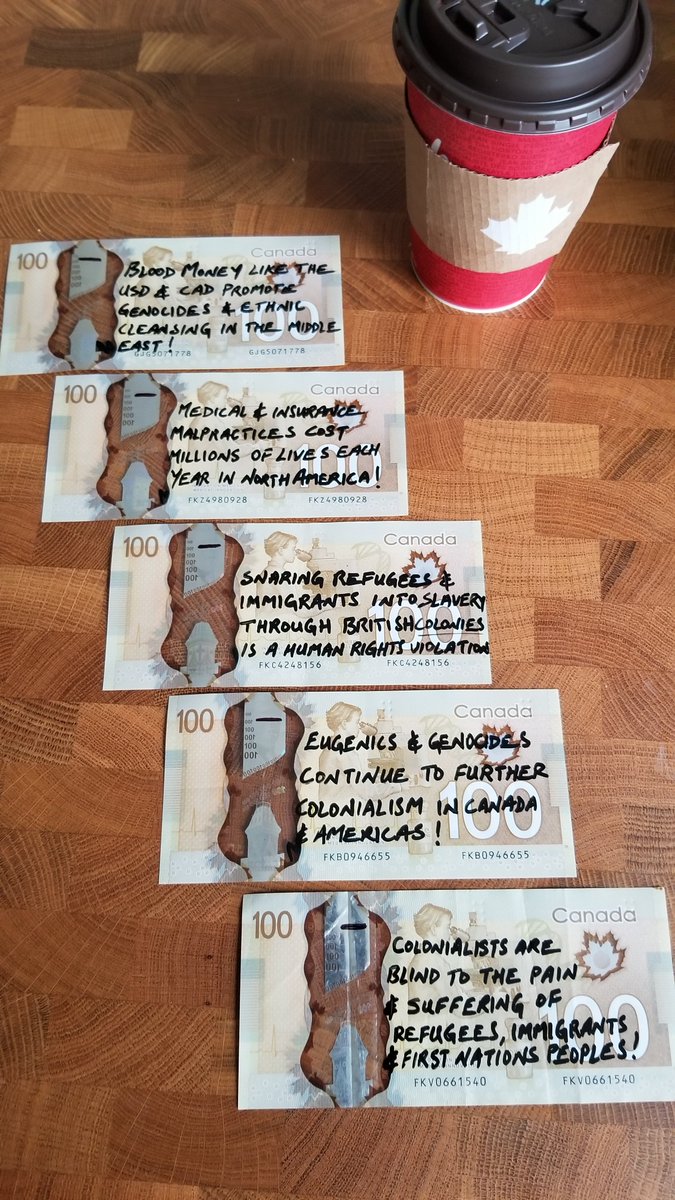 Canada
100
BLOOD MONEY LIKE THE
USD & CAD PROMOTE
GENOCIDES & ETHNIC
CLEANSING IN THE MIDDLE
EAST!
100
GJG5071778 GJG5071778
Canada
100
MEDICAL & INSURANCE
MALPRACTICES COST
MILLIONS OF LIVES EACH
YEAR IN NORTH AMERICA!
100
FKZ4980928 FKZ4980928
Canada
100
SNARING REFUGEES &
IMMIGRANTS INTO SLAVERY
THROUGH BRITISH COLONIES
IS A HUMAN RIGHTS VIOLATION
100
FKC4248156 FKC4248156
Canada
100
EUGENICS & GENOCIDES
CONTINUE TO FURTHER
COLONIALISM IN CANADA
& AMERICAS!
100
FKB0946655 FKB0946655
Canada
100
COLONIALISTS ARE
BLIND TO THE PAIN
& SUFFERING OF
REFUGEES, IMMIGRANTS,
& FIRST NATIONS PEOPLES!
100
FKV0661540 FKV0661540